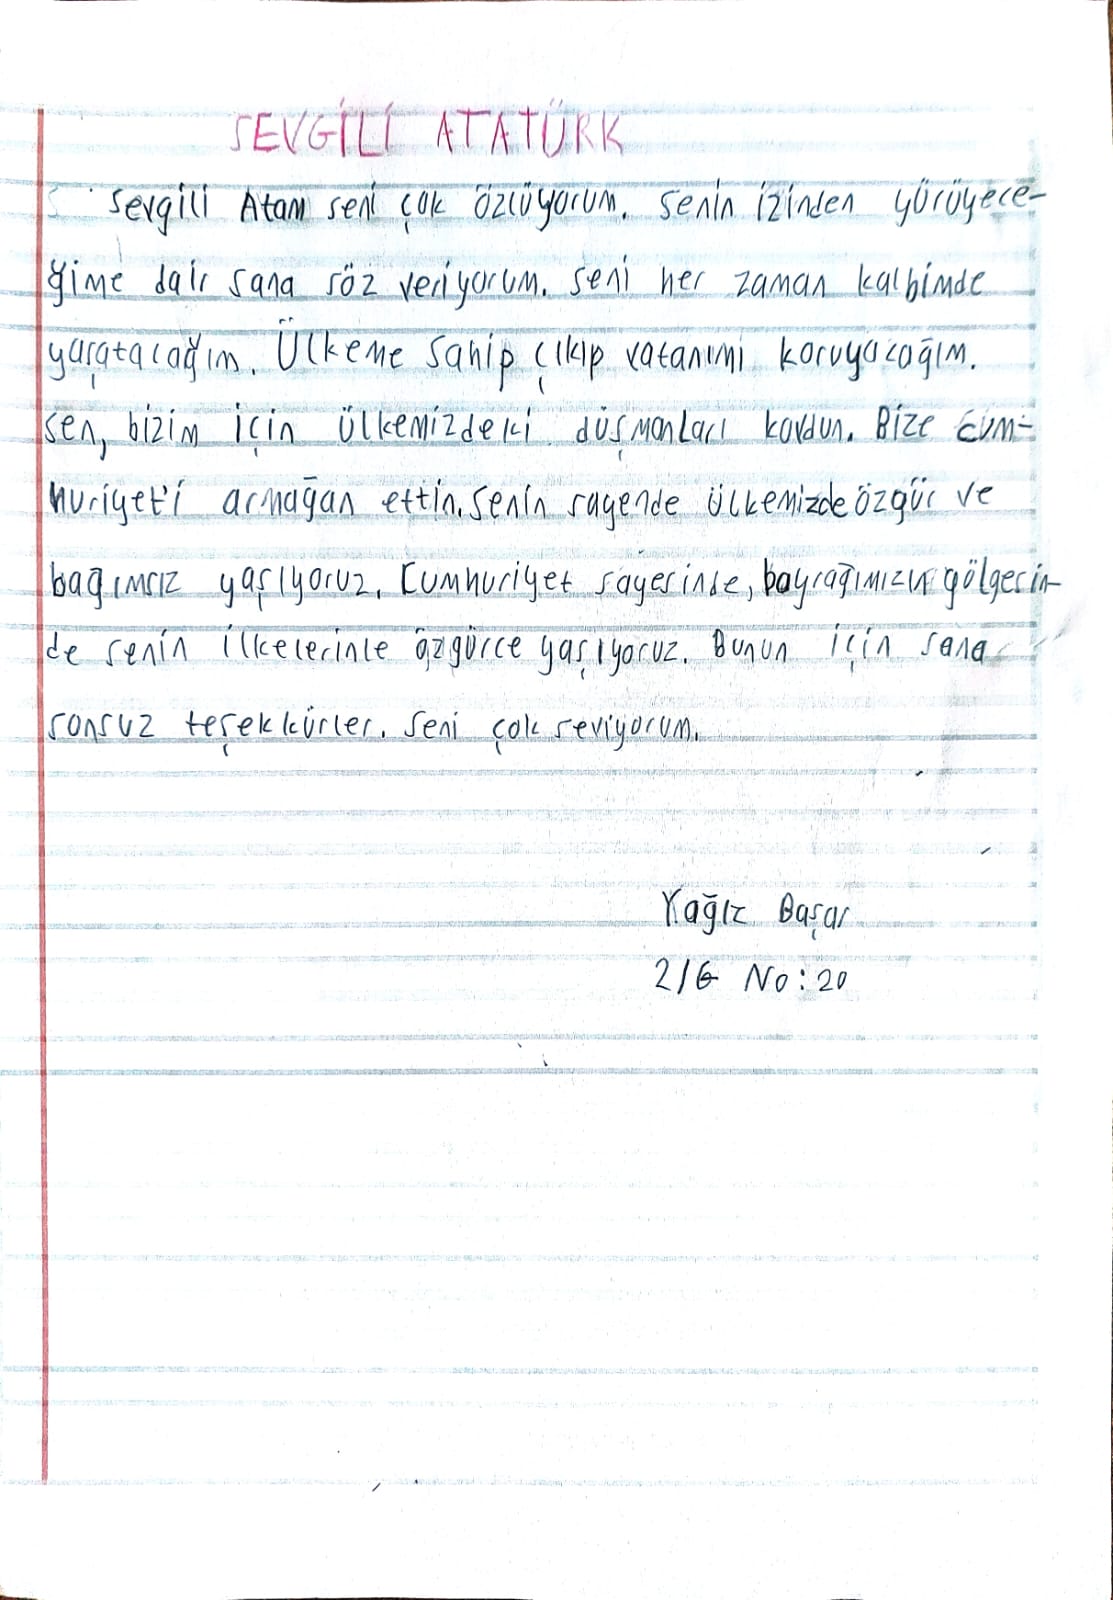 SEVGİLİ ATATÜRK
Sevgili Atam seni çok özlüyorum. Senin izinden yürüyece-
ğime dair sana söz veriyorum. Seni her zaman kalbimde
yaşatacağım. Ülkeme sahip çıkıp vatanımı koruyacağım.
Sen, bizim için ülkemizdeki düşmanları kovdun. Bize Cum-
huriyet'i armağan ettin. Senin sayende ülkemizde özgür ve
bağımsız yaşıyoruz. Cumhuriyet sayesinde, bayrağımızın gölgesin-
de senin ilkelerinle özgürce yaşıyoruz. Bunun için sana
sonsuz teşekkürler. Seni çok seviyorum.
Yağız Başar
2/G No: 20